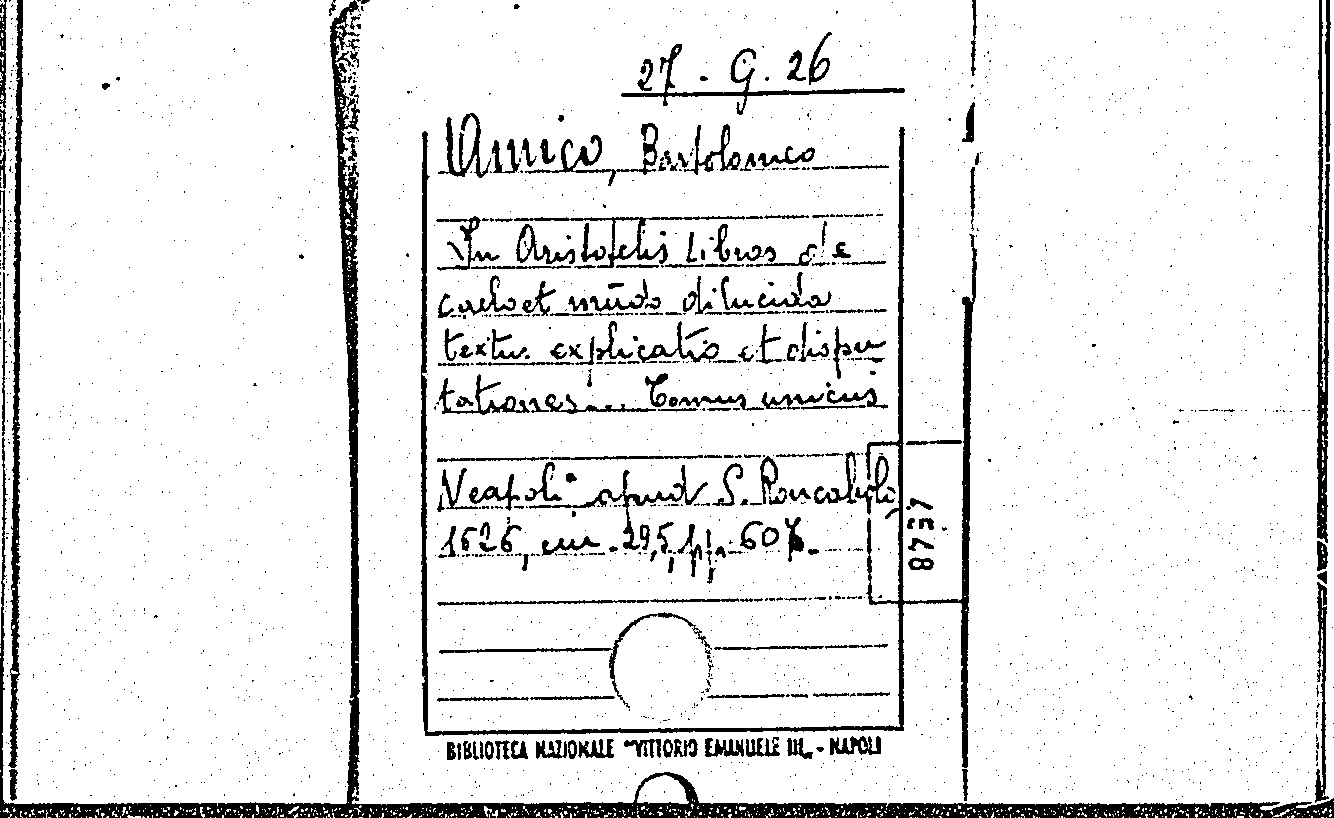 27 . G. 26
Amico, Bartolomeo
In Aristotelis Libros de
caelo et mūdo dilucida
textus explicatio et dispu
tationes... Tomus unicus
Neapoli apud S. Roncaliolo,
1626, cm. 29,5, pp. 607.
8737
BIBLIOTECA NAZIONALE "VITTORIO EMANUELE III„ - NAPOLI